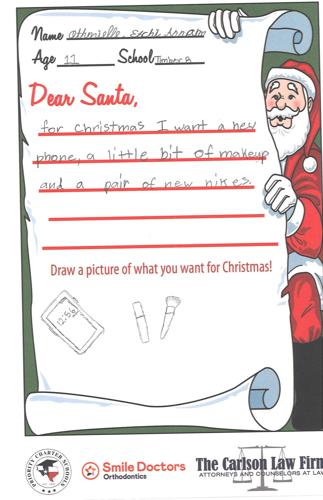 Name
Age 11 School Timber
Dear Santa,
for christmas I want a new
phone, a little bit of makeup
and a pair of new nikes.
Draw a picture of what you want for Christmas!
12:56
PRIORITY CHARTER SCHOOLS
Smile Doctors
Orthodontics
The Carlson Law Firm
ATTORNEYS AND COUNSELORS AT LAW